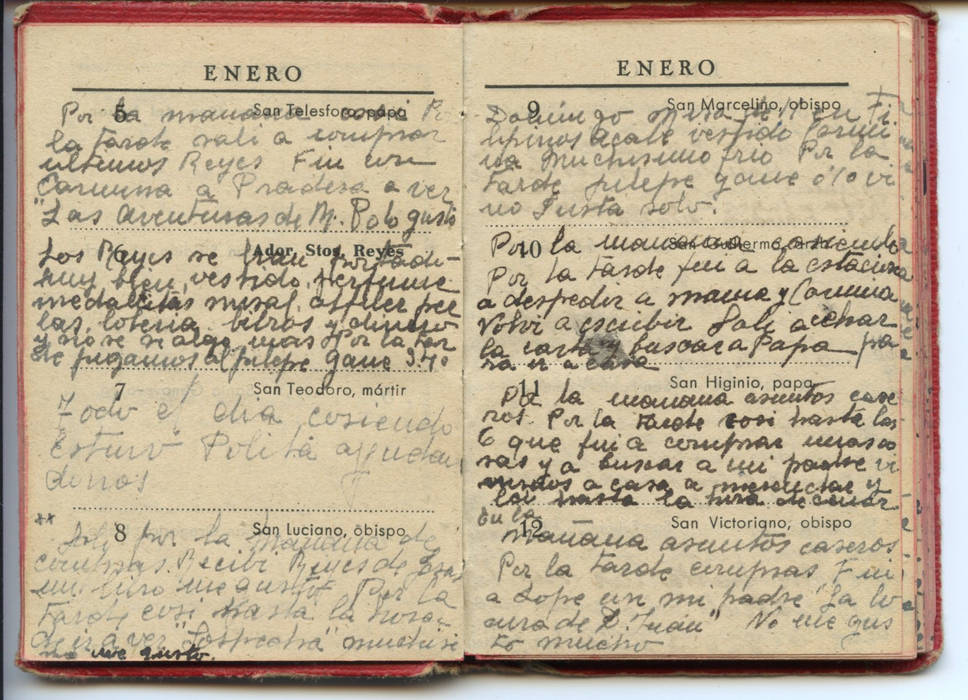 ENERO
5 San Telesforo, papa
Por la mañana cosi Por
la tarde sali a comprar
ultimos Reyes Fui con
Carmina a Pradera a ver
"Las Aventuras de M. Polo gusto
6 Ador. Stos. Reyes
Los Reyes se han portado
muy bien, vestido, perfume
medallitas misal, alfiler per
las, loteria, libros y dinero
y no se si algo mas Por la tar
de jugamos al julepe gane 3.40
7 San Teodoro, mártir
Todo el dia cosiendo
Estuvo Polita ayudan
donos
8 San Luciano, obispo
Sali por la mañana de
compras. Recibi Reyes de
un libro me gusto. Por la
tarde cosi hasta la hora
de ir a ver "Sospecha" muchisi
mo me gusto.
ENERO
9 San Marcelino, obispo
Domingo misa en Fi
lipinos Acabe vestido Carmi
na Muchisimo frio Por la
tarde julepe y ame
no Justa solo.
10 San Guillermo, arz.
Por la mañana cosiendo
Por la tarde fui a la estacion
a despedir a mama y Carmina
Volvi a escribir Sali a echar
la carta y buscar a Papa pa
ra ir a casa
11 San Higinio, papa
Por la mañana asuntos case
ros. Por la tarde cosi hasta las
6 que fui a comprar unas co
sas y a buscar a mi padre vi
nimos a casa a merendar y
hasta la hora de cenar
12 San Victoriano, obispo
En la
mañana asuntos caseros
Por la tarde compras Fui
a Lope con mi padre "La lo
cura de D. Juan" No me gus
to mucho